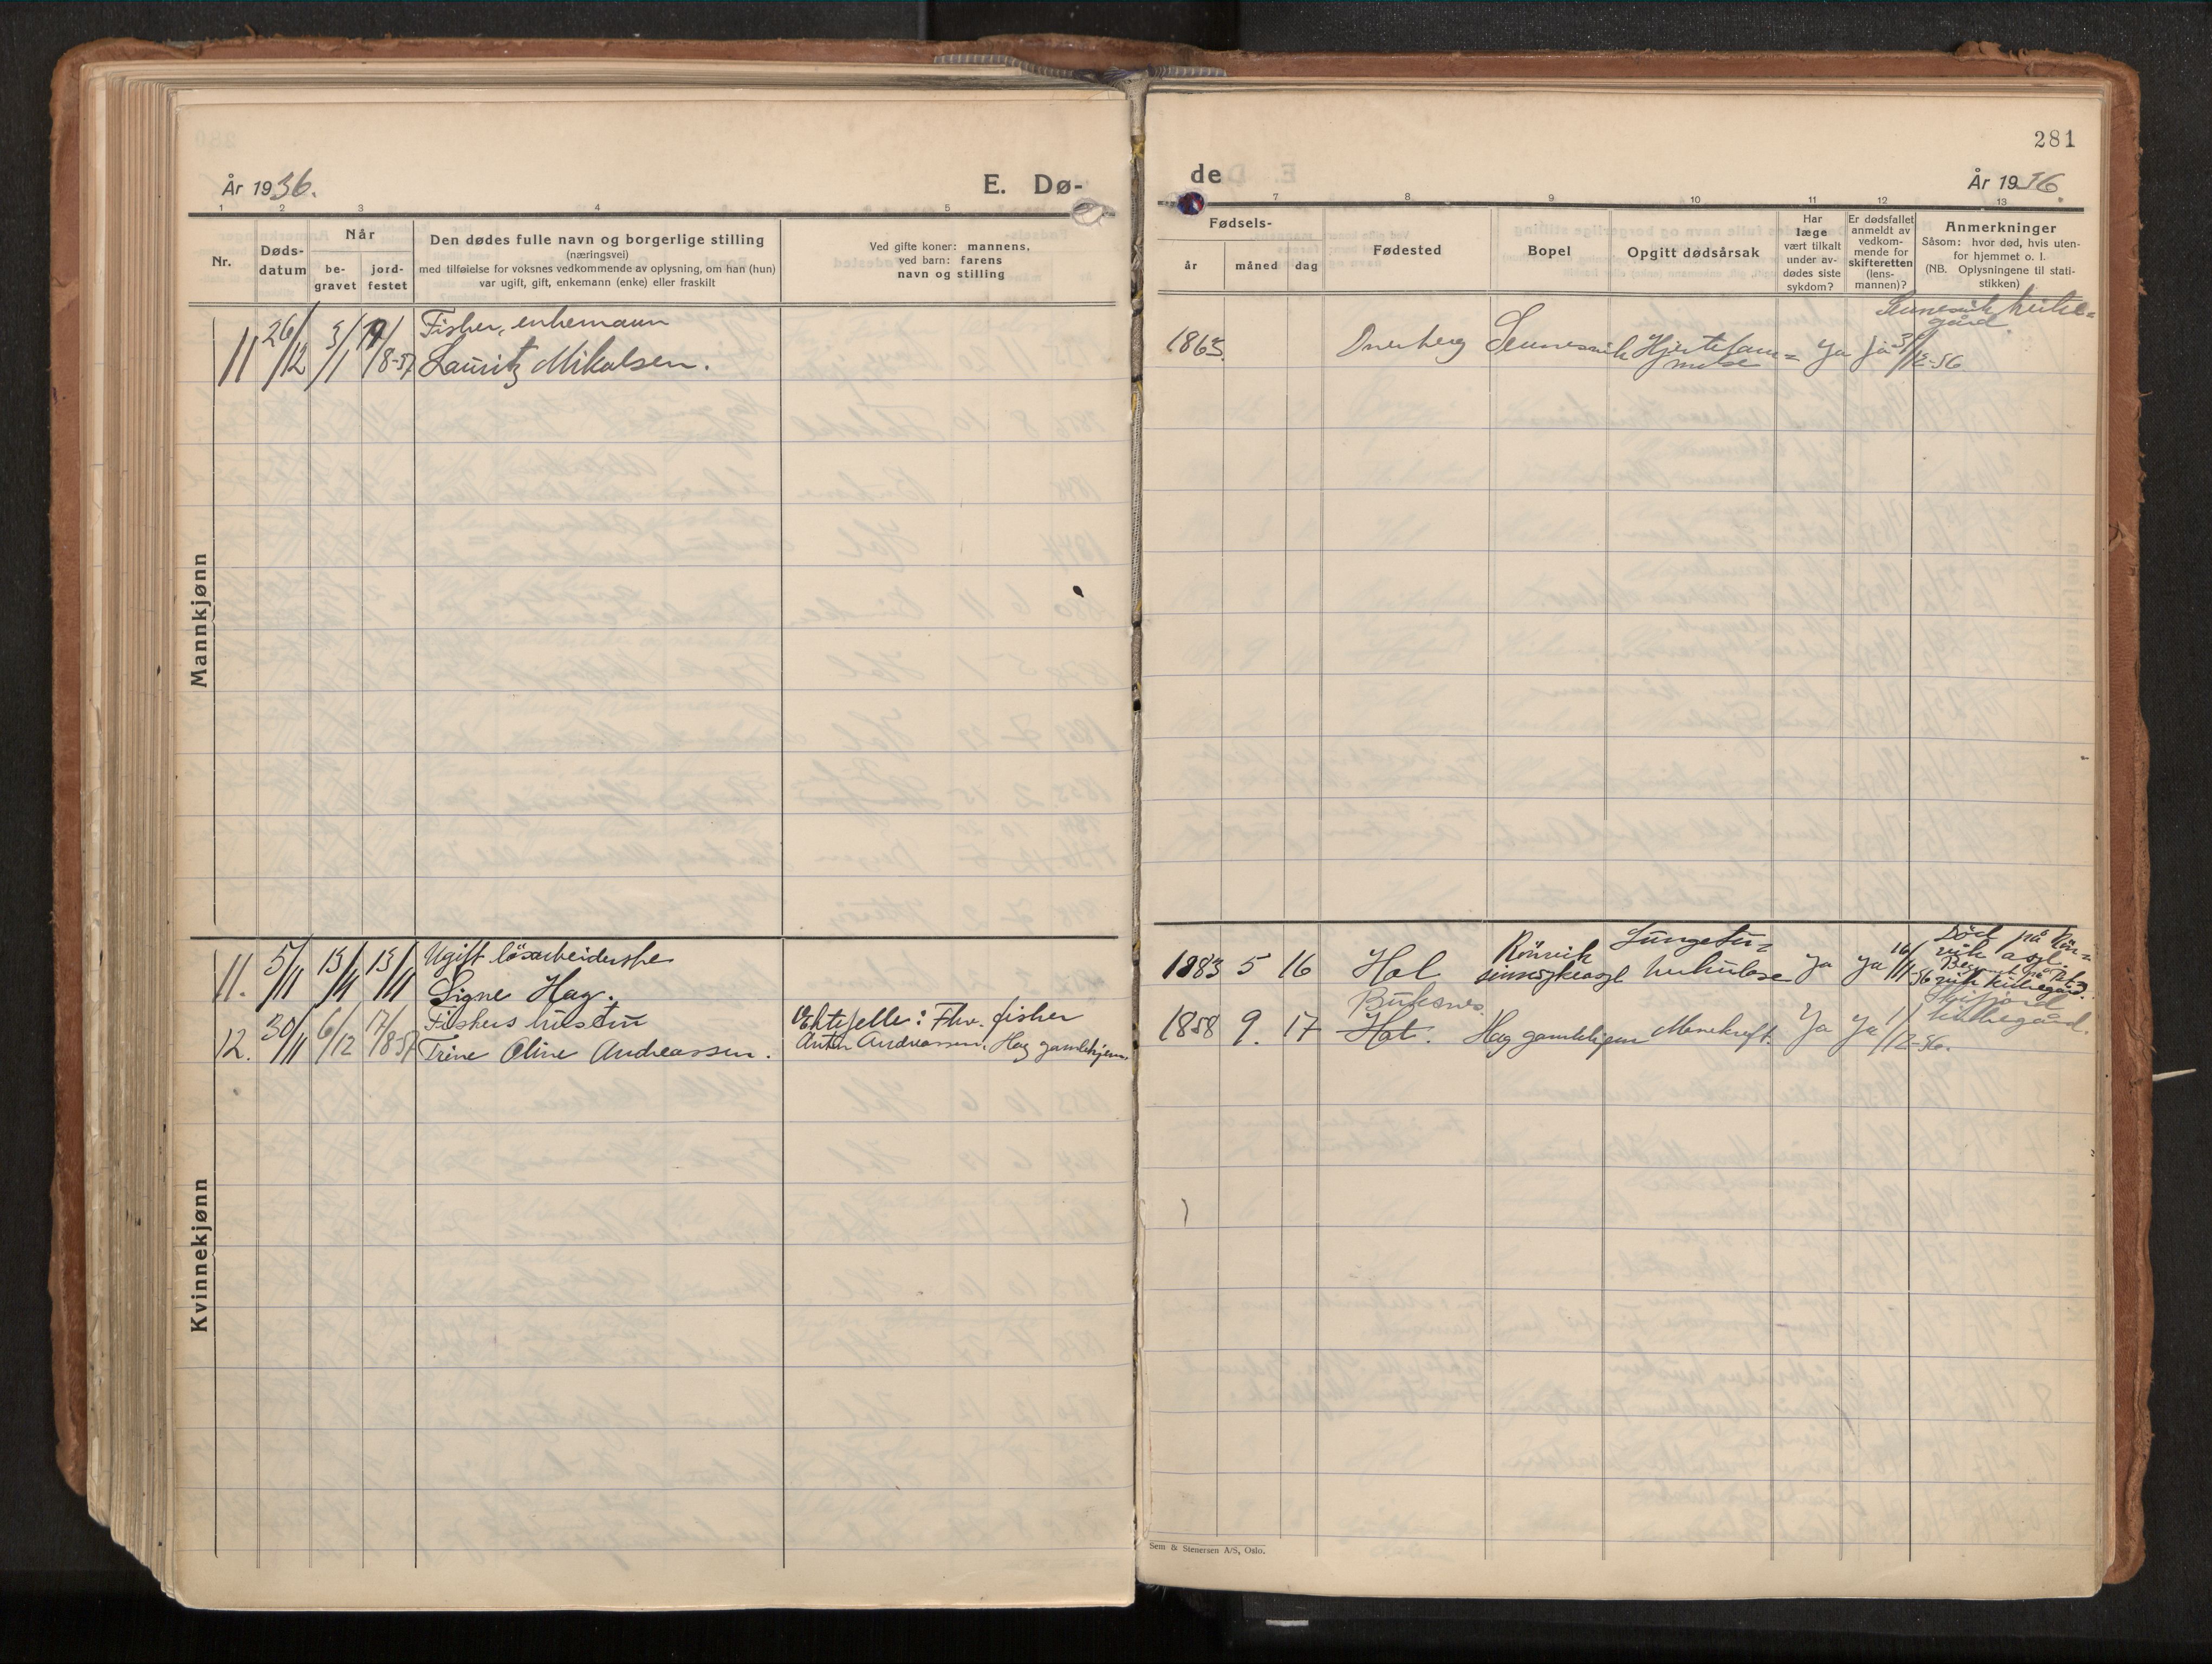 281
År 1936.
E. Dø-
de
År 1936.
1 2 3 4 5
7 8 9 10 11 12 13
Nr.
Døds-
datum
Når
be-
gravet
jord-
festet
Den dødes fulle navn og borgerlige stilling
(næringsvei)
med tilføielse for voksnes vedkommende av oplysning, om han (hun)
var ugift, gift, enkemann (enke) eller fraskilt
Ved gifte koner: mannens,
ved barn: farens
navn og stilling
Fødsels-
år måned dag
Fødested
Bopel
Opgitt dødsårsak
Har
læge
vært tilkalt
under av-
dødes siste
sykdom?
Er dødsfallet
anmeldt av
vedkom-
mende for
skifteretten
(lens-
mannen)?
Anmerkninger
Såsom: hvor død, hvis uten-
for hjemmet o. l.
(NB. Oplysningene til stati-
stikken)
Mannkjønn
11 26/12 3/1 19/8-37 Fisker, enkemann
Lauritz Mikalsen.
1863. Sennesvik Hjertelam=
melse Ja Ja 31/12-36
Sennesvik kirke=
gård.
Kvinnekjønn
11. 5/11 13/11 13/11 Ugift løsarbeiderske
Signe Hag.
1883 5 16 Hol Rönvik
sinnssykeasyl Lungetu=
berkulose Ja Ja 16/11-36
Död på Rön=
vik asyl.
Begravet på
kirkegård.
12. 30/11 6/12 17/8-37 Fiskers hustru
Trine Oline Andreassen.
Ektefelle: Fhv. fisker
Anton Andreassen, Hag gamlehjem.
1858 9. 17 Buksnes.
Hol. Hag gamlehjem Marekreft. Ja Ja 1/12-36.
kirkegård.
Sem & Stenersen A/S, Oslo.